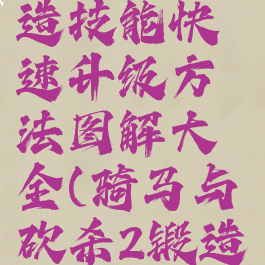 造技能快
速升级方
法图解大
全(骑马与
砍杀2锻造